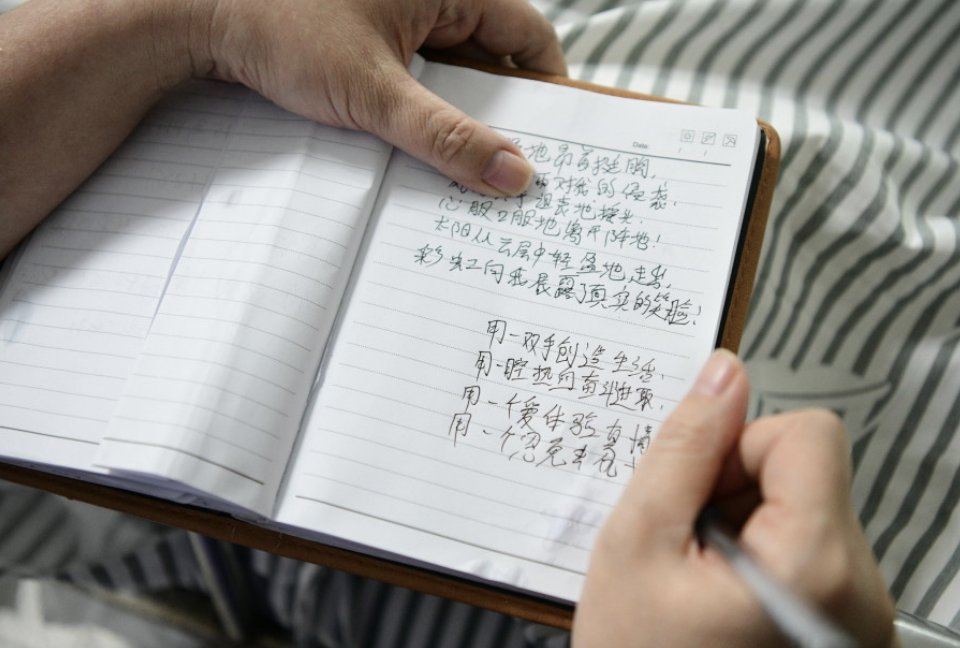 Date:
地昂首挺胸,
对我的侵袭!
地接头!
心服口服地离开阵地!
太阳从云层中轻盈地走出,
彩虹向我展露了真实的笑脸!
用一双手创造生活,
用一腔热血奋斗进取,
用一个爱体验真情
用一个宽去